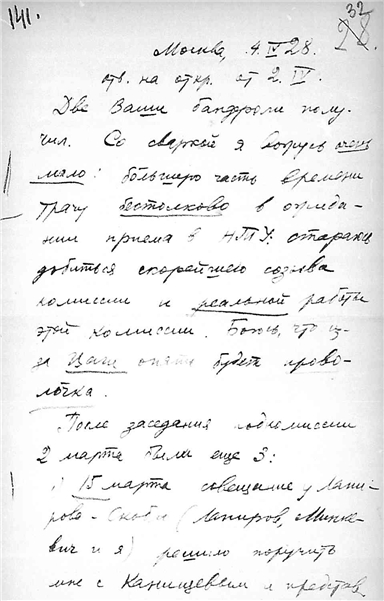 141.
32
28
Москва, 4.IV.28.
отв. на откр. от 2.IV.
Две Ваши бандероли полу-
чил. Со сваркой я вожусь очень
мало: большую часть времени
трачу бестолково в ожида-
нии приема в НТУ: стараюсь
добиться скорейшего созыва
комиссии и реальной работы
этой комиссии. Боюсь, что из-
за опять будет прово-
лочка.
После заседания подкомиссии
2 марта были еще 3:
1) 15 марта совещание у Лапи-
рова-Скобло (Лапиров, Минке-
вич и я) решило поручить
мне с Канищевым представ